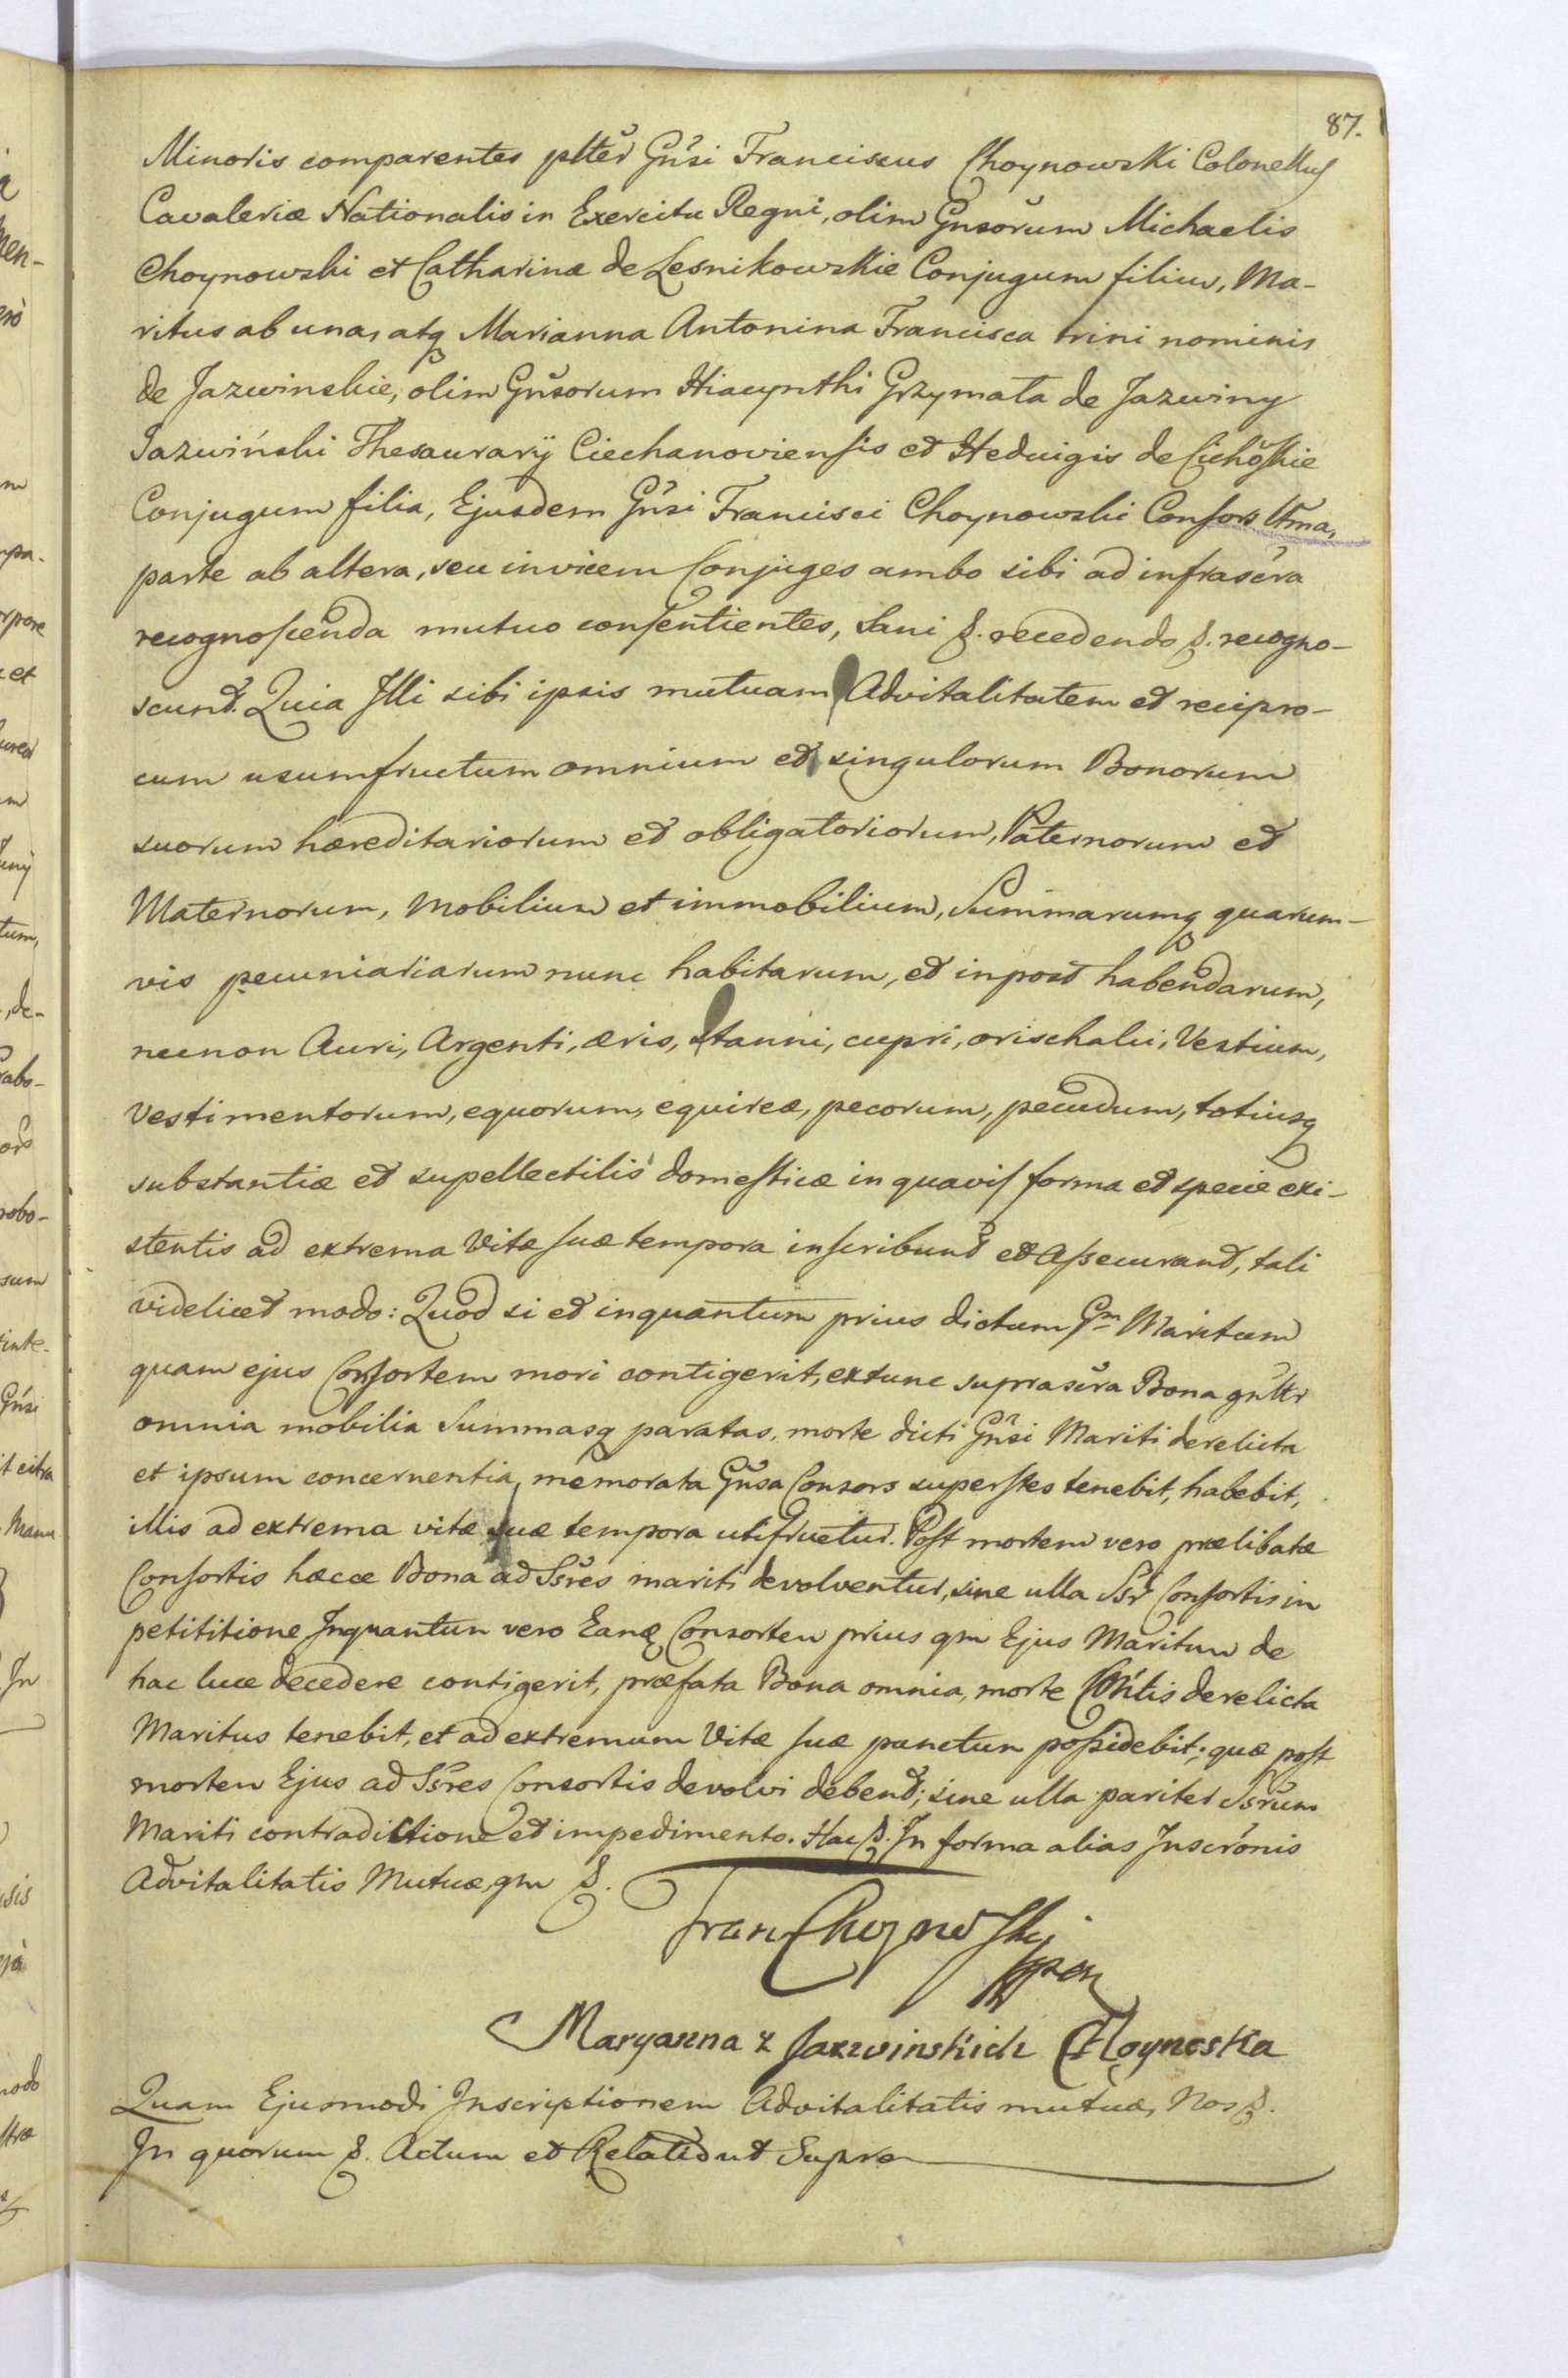 87.
Minoris comparentes pltĕr Gňsi Franciscus Choynowski Colonellus
Cavaleriæ Nationalis in Exercitu Regni, olim Gnsŏrum Michaelis
Choynowski et Catharinæ de Lesnikowskie Conjugum filius, Ma-
ritus ab una, atq Marianna Antonina Francisca trini nominis
de Jazwinskie, olim Gňsorum Hiacynthi Grzymała de Jazwiny
Jazwiński Thesaurarij Ciechanoviensis et Hedvigis de Cichoskie
Conjugum filia, Ejusdem Gňsi Francisci Choynowski Consors Ltma,
parte ab altera, seu invicem Conjuges ambo sibi ad infrascra
recognoscenda mutuo consentientes, Sani &. recedendo &. recogno-
scund. Quia Illi sibi ipsis mutuam Advitalitatem et recipro-
cum usumfructum omnium et singulorum Bonorum
suorum hæreditariorum et obligatoriorum, Paternorum et
Maternorum, Mobilium et immobilium, Summarumq quarum-
vis pecuniariarum nunc habitarum, et inpost habendarum,
necnon Auri, Argenti, æris, Stanni, cupri, orischalci, Vestium,
Vestimentorum, equorum, equireæ, pecorum, pecudum, totiusq
substantiæ et supellectilis domesticæ in quavis forma et specie exi-
stentis ad extrema Vitæ suæ tempora inscribund et Assecurand, tali
videlicet modo: Quod si et inquantum prius dictum Gm Maritum
quam ejus Consortem mori contigerit, extunc suprascra Bona gnltr
omnia mobilia Summasq paratas, morte dicti Gňsi Mariti derelicta
et ipsum concernentia, memorata Gňsa Consors superstes tenebit, habebit,
illis ad extrema vitæ suæ tempora utifruetur. Post mortem vero prælibatæ
Consortis hæcce Bona ad Ssres mariti devolventur, sine ulla Ssr Consortis in
petititione Inquantum vero Eanq Consortem prius qm Ejus Maritum de
hac luce decedere contigerit, præfata Bona omnia, morte Cońtis derelicta
Maritus tenebit, et ad extremum Vitæ suæ punctum possidebit; quæ post
mortem Ejus ad Ssres Consortis devolvi debend; sine ulla pariter Ssrum
Mariti contradictione et impedimento. Hac &. In forma alias Inscrŏnis
Advitalitatis Mutuæ, qm &.
Fran Choynowski
mpm
Maryanna z Jazwinskich Choynoska
Quam Ejusmodi Inscriptionem Advitalitatis mutuæ, Nos &.
In quorum &. Actum et Relat ut Supra